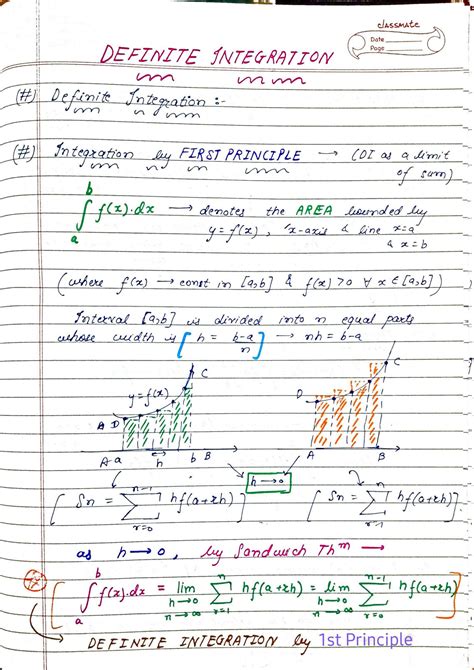 classmate
Date
Page
DEFINITE INTEGRATION
(#) Definite Integration :-
(#) Integration by FIRST PRINCIPLE → (DI as a limit of sum)
∫_a^b f(x).dx → denotes the AREA bounded by
y = f(x), x-axis & line x=a
& x=b
(where f(x) → const in [a,b] & f(x) > 0 ∀ x ∈ [a,b])
Interval [a,b] is divided into n equal parts
whose width is [h = b-a/n] → nh = b-a
C
y=f(x)
A D
A a h b B
C
D
A B
h → 0
[Sn = Σ_{r=0}^{n-1} hf(a+rh)] [Sn = Σ_{r=1}^{n} hf(a+rh)]
as h → 0, by Sandwich Th^m →
[∫_a^b f(x).dx = lim_{h→0, n→∞} Σ_{r=1}^{n} hf(a+rh) = lim_{h→0, n→∞} Σ_{r=0}^{n-1} hf(a+rh)]
DEFINITE INTEGRATION by 1st Principle